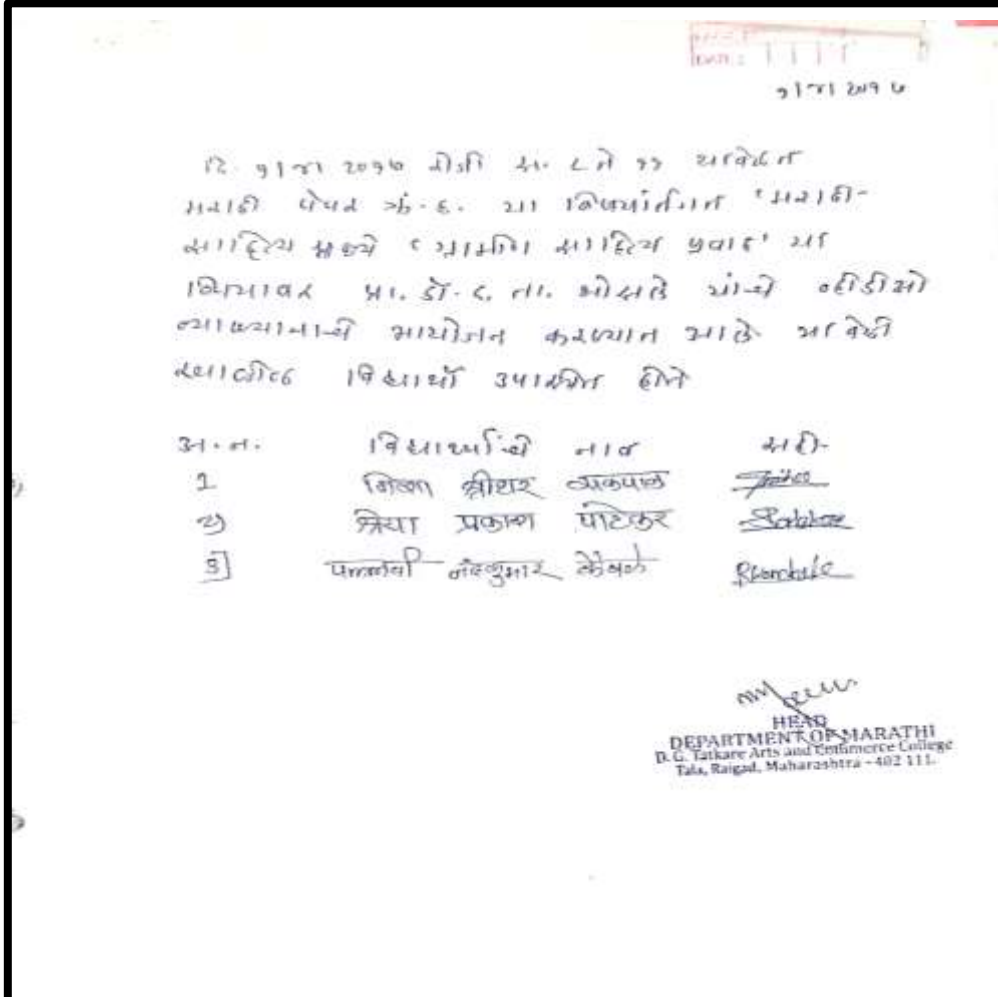 DATE:
दि. २०१७ रोजी स. ८ ते ११ यावेळेत
मराठी पेपर क्रं. ६. या विषयांर्तगत 'मराठी-
साहित्य मध्ये 'ग्रामीण साहित्य प्रवाह' या
विषयावर प्रा. डॉ. द. ता. भोसले यांचे व्हीडीओ
व्याख्यानाचे आयोजन करण्यात आले यावेळी
खालील विद्यार्थी उपस्थित होते
अ.न. विद्यार्थ्यांचे नाव सही-
1 श्रीधर
२) श्रेया प्रकाश पाटेकर
3] पल्लवी नंदकुमार कांबळे RKamble
HEAD
DEPARTMENT OF MARATHI
D. G. Tatkare Arts and Commerce College
Tala, Raigad, Maharashtra - 402 111.